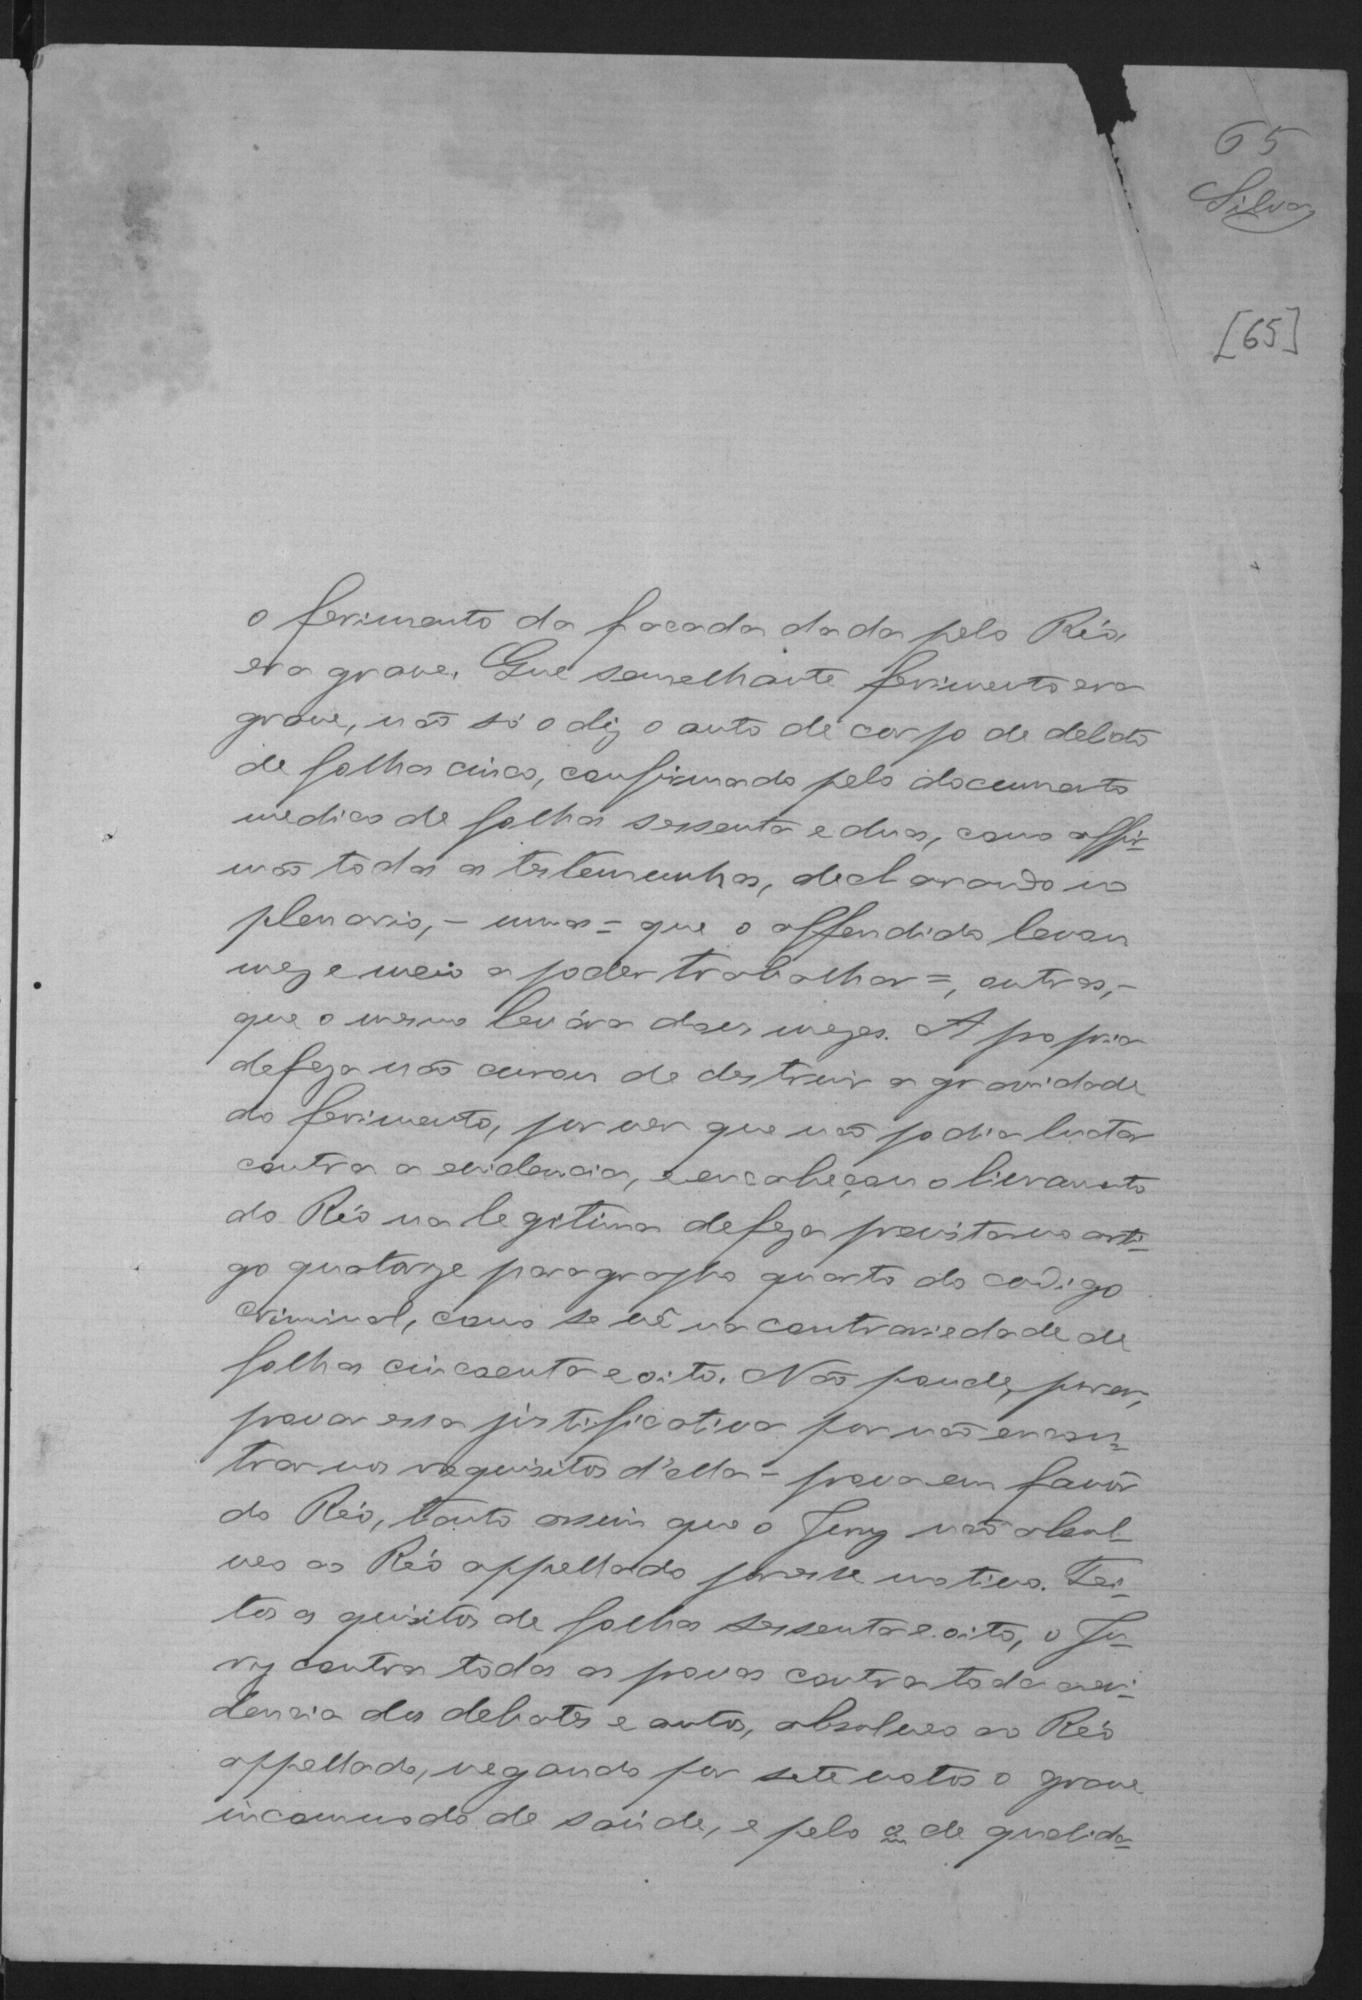 65
Silva
[65]
o ferimento da facada dada pelo Réo,
era grave. Que semelhante ferimento era
grave, não só o diz o auto de corpo de delicto
de folha cinco, confirmado pelo documento
medico de folha sessenta e duas, como affir=
mão todas as testemunhas, declarando no
plenario, - umas = que o offendido levou
mez e meio a poder trabalhar =, outras, -
que o mesmo levára dous mezes. A propria
defeza não curou de destruir a gravidade
do ferimento, por ver que não podia luctar
contra a evidencia, e encabeçou o livramento
do Réo na legitima defeza prevista no arti=
go quatorze paragrapho quarto do codigo
criminal, como se vê na contrariedade de
folha cincoenta e oito. Não poude, porem,
provar essa justificativa por não encon=
trar nos requisitos d'ella - prova em favor
do Réo, tanto assim que o Jury não absol_
veo ao Réo appellado por esse motivo. Fei_
tos os quisitos de folha sessenta e oito, o Ju_
ry contra todas as provas contra toda a evi=
dencia dos debates e autos, absolveo ao Réo
appellado, negando por sete votos o grave
incommodo de saúde, e pelo de qualida=